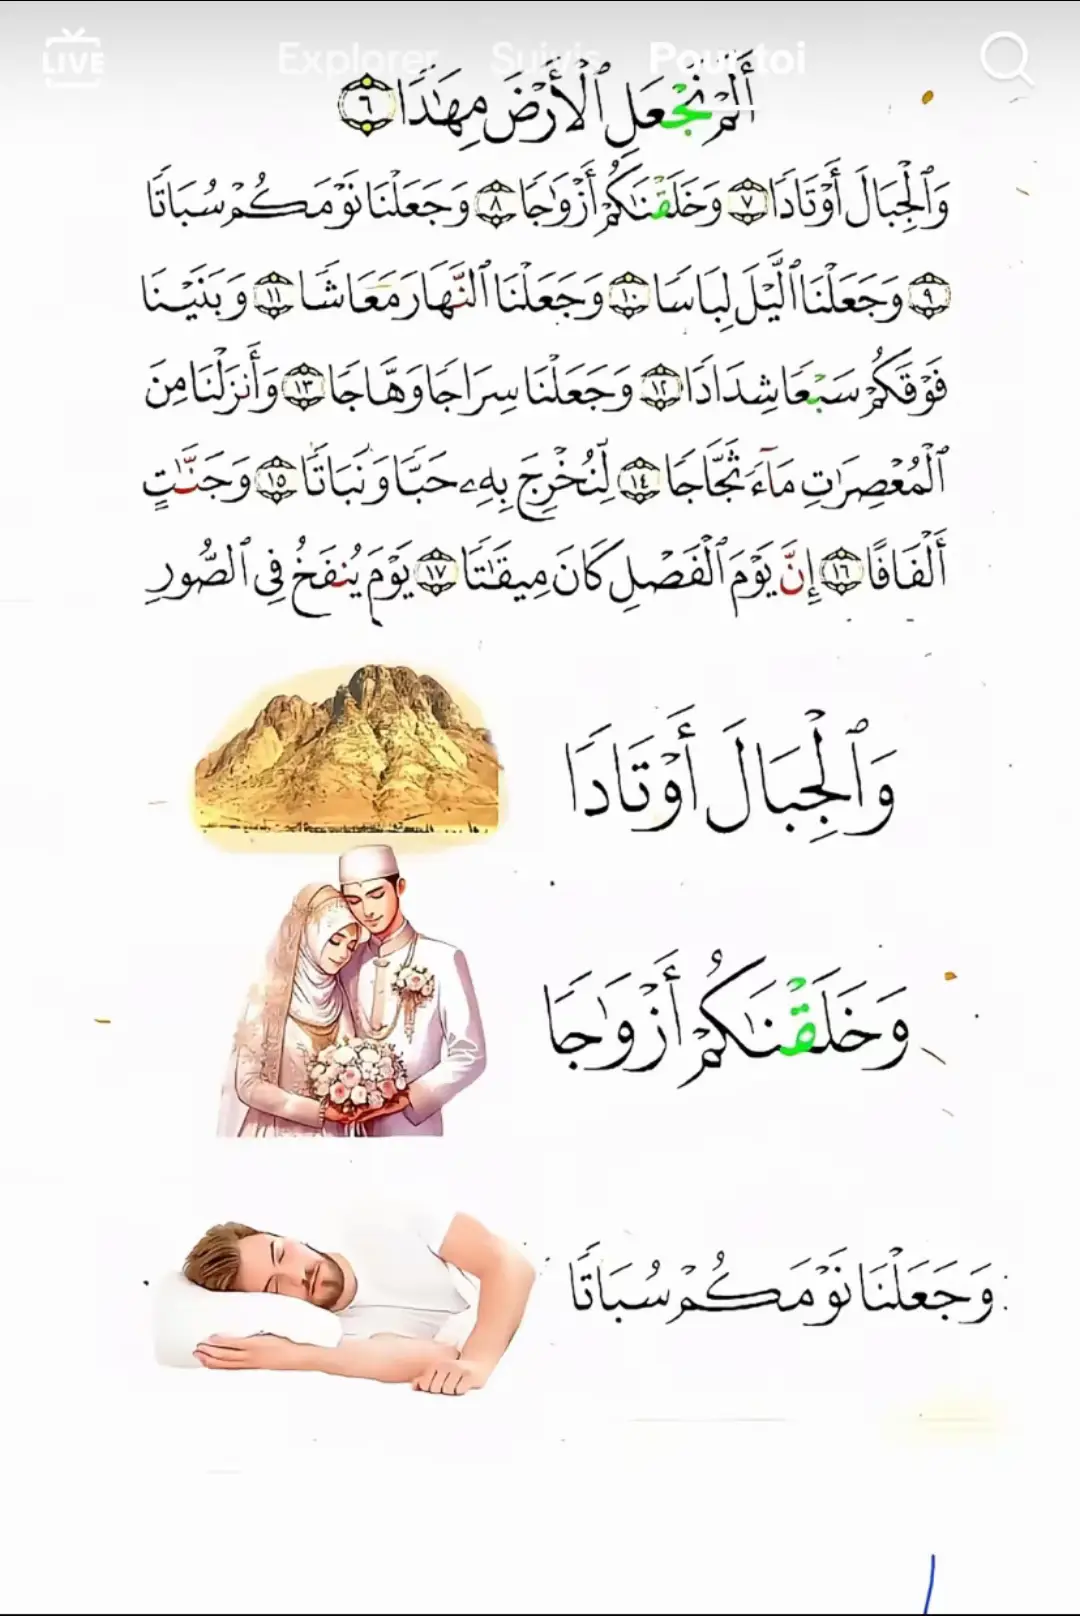 LIVE
Explorer Suivis Pour toi
أَلَمْ نَجْعَلِ ٱلْأَرْضَ مِهَٰدًا ٦
وَٱلْجِبَالَ أَوْتَادًا ٧ وَخَلَقْنَٰكُمْ أَزْوَٰجًا ٨ وَجَعَلْنَا نَوْمَكُمْ سُبَاتًا
٩ وَجَعَلْنَا ٱلَّيْلَ لِبَاسًا ١٠ وَجَعَلْنَا ٱلنَّهَارَ مَعَاشًا ١١ وَبَنَيْنَا
فَوْقَكُمْ سَبْعًا شِدَادًا ١٢ وَجَعَلْنَا سِرَاجًا وَهَّاجًا ١٣ وَأَنزَلْنَا مِنَ
ٱلْمُعْصِرَٰتِ مَآءً ثَجَّاجًا ١٤ لِّنُخْرِجَ بِهِۦ حَبًّا وَنَبَاتًا ١٥ وَجَنَّٰتٍ
أَلْفَافًا ١٦ إِنَّ يَوْمَ ٱلْفَصْلِ كَانَ مِيقَٰتًا ١٧ يَوْمَ يُنفَخُ فِى ٱلصُّورِ
وَٱلْجِبَالَ أَوْتَادًا
وَخَلَقْنَٰكُمْ أَزْوَٰجًا
وَجَعَلْنَا نَوْمَكُمْ سُبَاتًا